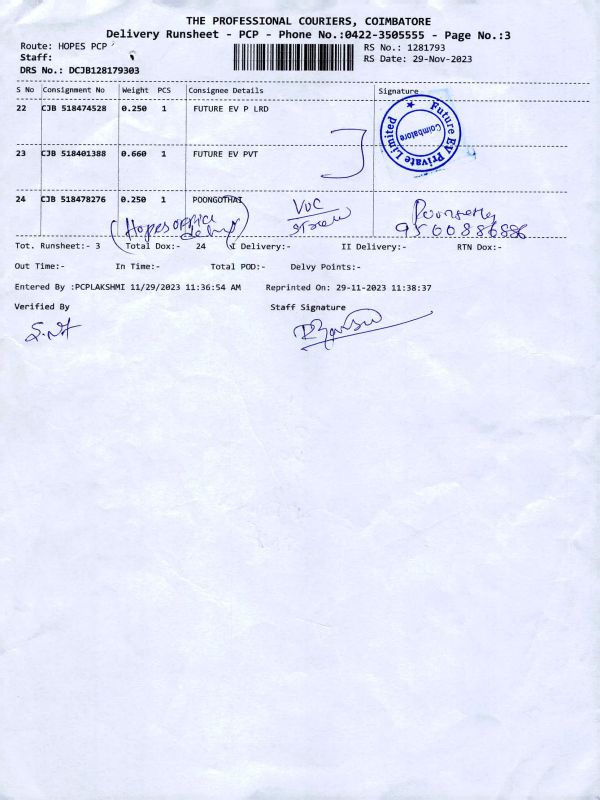 THE PROFESSIONAL COURIERS, COIMBATORE
Delivery Runsheet - PCP - Phone No.:0422-3505555 - Page No.:3
Route: HOPES PCP
RS No.: 1281793
Staff:
RS Date: 29-Nov-2023
DRS No.: DCJB128179303
S No Consignment No Weight PCS Consignee Details Signature
22 CJB 518474528 0.250 1 FUTURE EV P LRD
Future EV Private Limited
Coimbatore
23 CJB 518401388 0.660 1 FUTURE EV PVT
24 CJB 518478276 0.250 1 POONGOTHAI
(Hopes office
VOC
9500886886
Tot. Runsheet:- 3 Total Dox:- 24 I Delivery:- II Delivery:- RTN Dox:-
Out Time:- In Time:- Total POD:- Delvy Points:-
Entered By :PCPLAKSHMI 11/29/2023 11:36:54 AM Reprinted On: 29-11-2023 11:38:37
Verified By Staff Signature